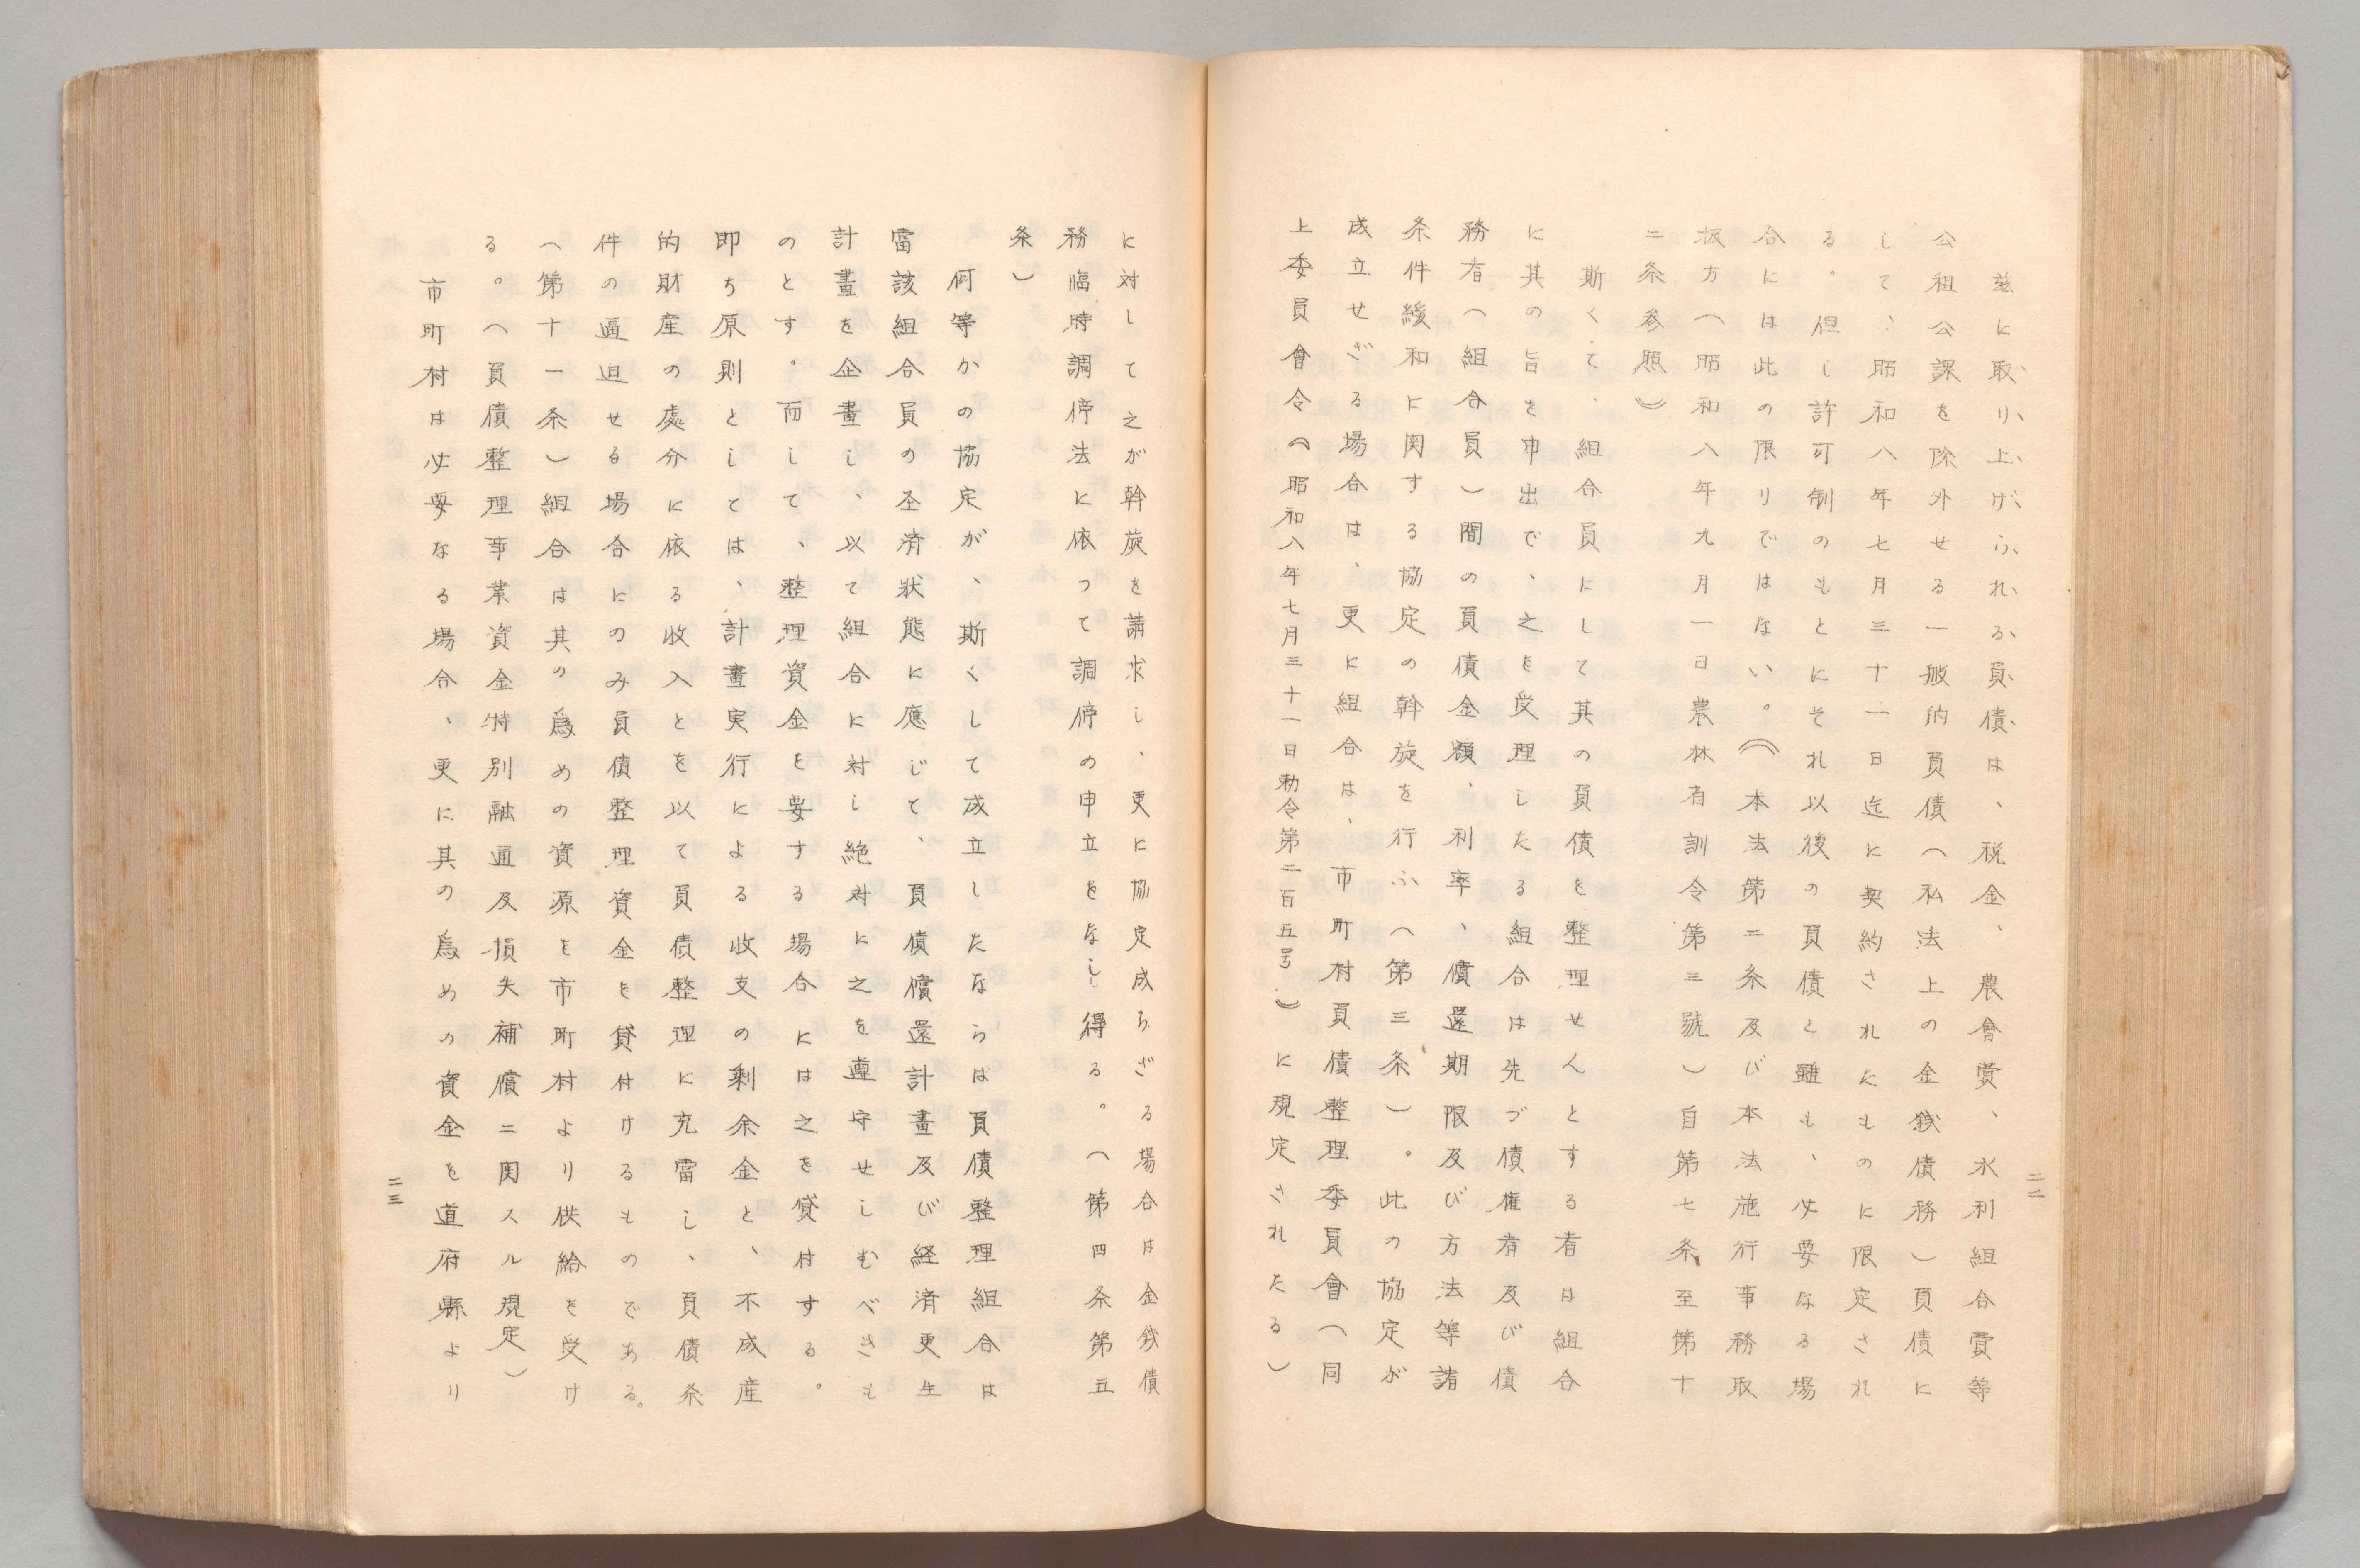 茲に取り上げられる負債は、税金、農會費、水利組合費等
公租公課を除外せる一般的負債（私法上の金銭債務）負債に
して、昭和八年七月三十一日迄に契約されたものに限定され
る。但し許可制のもとにそれ以後の負債と雖も、必要なる場
合には此の限りではない。（（本法第二条及び本法施行事務取
扱方（昭和八年九月一日農林省訓令第三號）自第七条至第十
二条参照））
斯くて、組合員にして其の負債を整理せんとする者は組合
に其の旨を申出で、之を受理したる組合は先づ債権者及び債
務者（組合員）間の負債金額、利率、償還期限及び方法等諸
条件緩和に関する協定の斡旋を行ふ（第三条）。此の協定が
成立せざる場合は、更に組合は、市町村負債整理委員會（同
上委員會令（（昭和八年七月三十一日勅令第二百五号））に規定されたる）
二二
に対して之が斡旋を請求し、更に協定成らざる場合は金銭債
務臨時調停法に依つて調停の申立をなし得る。（第四条第五
条）
何等かの協定が、斯くして成立したならば負債整理組合は
當該組合員の圣済状態に應じて、負債償還計畫及び経済更生
計畫を企畫し、以て組合に対し絶対に之を遵守せしむべきも
のとす。而して、整理資金を要する場合には之を貸付する。
即ち原則としては、計畫実行による收支の剰余金と、不成産
的財産の處分に依る收入とを以て負債整理に充當し、負債条
件の逼迫せる場合にのみ負債整理資金を貸付けるものである。
（第十一条）組合は其の爲めの資源を市町村より供給を受け
る。（負債整理事業資金特別融通及損失補償ニ関スル規定）
市町村は必要なる場合、更に其の爲めの資金を道府縣より
二三